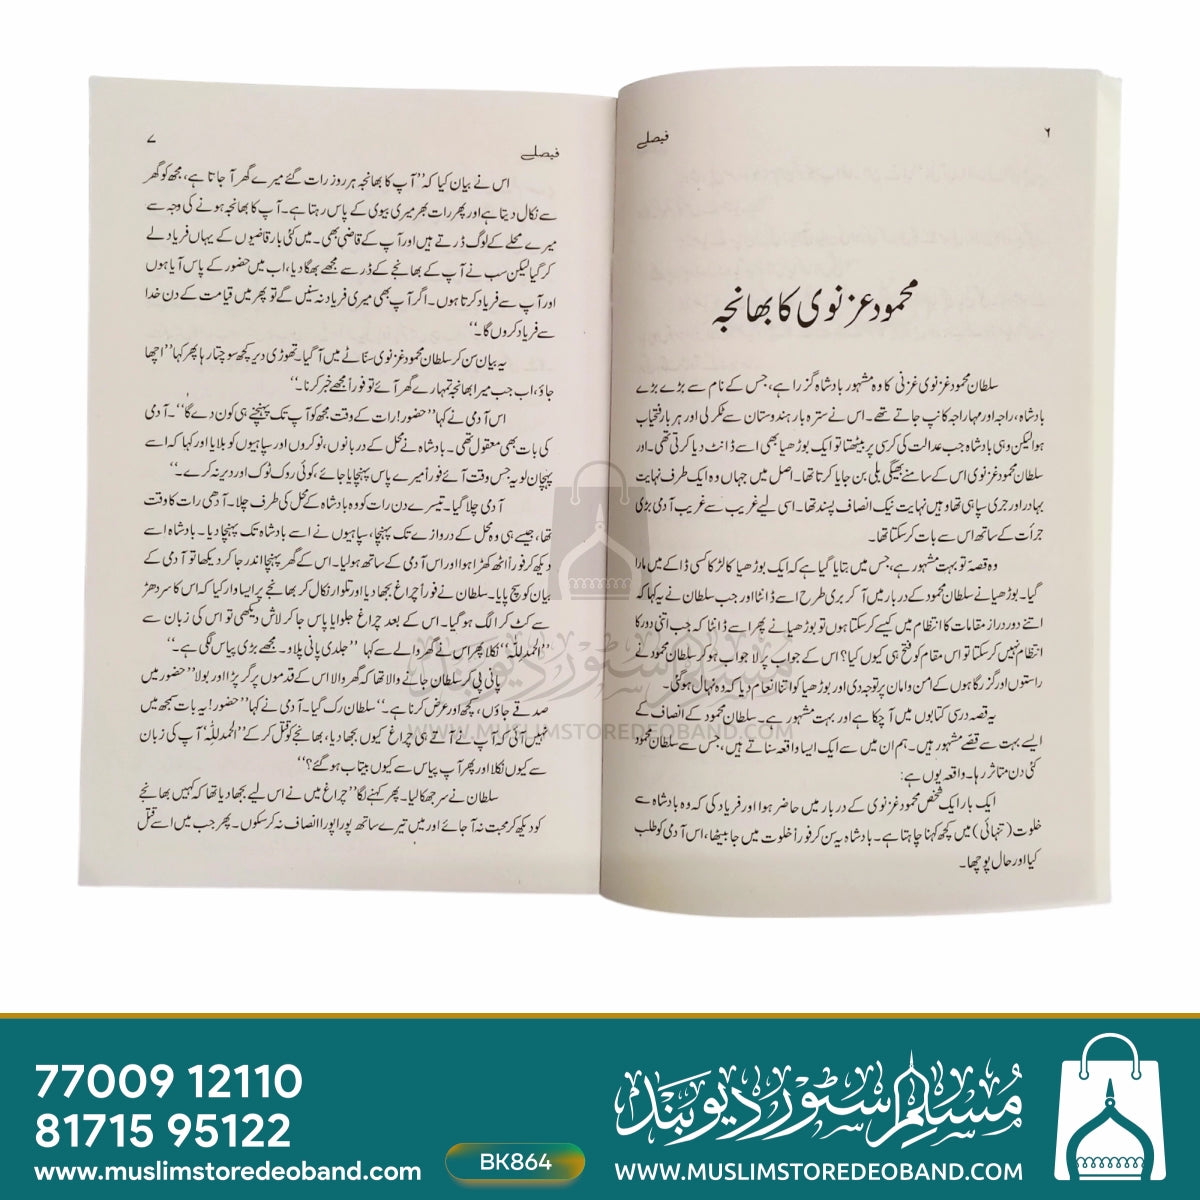 ۶
فیصلے
محمود غزنوی کا بھانجہ
سلطان محمود غزنوی غزنی کا وہ مشہور بادشاہ گزرا ہے، جس کے نام سے بڑے بڑے
بادشاہ، راجہ اور مہاراجہ کانپ جاتے تھے۔ اس نے سترہ بار ہندوستان سے ٹکر لی اور ہر بار فتحیاب
ہوا لیکن وہی بادشاہ جب عدالت کی کرسی پر بیٹھتا تو ایک بوڑھیا بھی اسے ڈانٹ دیا کرتی تھی۔ اور
سلطان محمود غزنوی اس کے سامنے بھیگی بلی بن جایا کرتا تھا۔ اصل میں جہاں وہ ایک طرف نہایت
بہادر اور جری سپاہی تھا وہیں نہایت نیک انصاف پسند تھا۔ اسی لیے غریب سے غریب آدمی بڑی
جرأت کے ساتھ اس سے بات کر سکتا تھا۔
وہ قصہ تو بہت مشہور ہے، جس میں بتایا گیا ہے کہ ایک بوڑھیا کا لڑکا کسی ڈاکے میں مارا
گیا۔ بوڑھیا نے سلطان محمود کے دربار میں آ کر بری طرح اسے ڈانٹا اور جب سلطان نے یہ کہا کہ
اتنے دور دراز مقامات کا انتظام میں کیسے کر سکتا ہوں تو بوڑھیا نے پھر اسے ڈانٹا کہ جب اتنی دور کا
انتظام نہیں کر سکتا تو اس مقام کو فتح ہی کیوں کیا؟ اس کے جواب پر لا جواب ہو کر سلطان محمود نے
راستوں اور گزرگاہوں کے امن و امان پر توجہ دی اور بوڑھیا کو اتنا انعام دیا کہ وہ نہال ہو گئی۔
یہ قصہ درسی کتابوں میں آ چکا ہے اور بہت مشہور ہے۔ سلطان محمود کے انصاف کے
ایسے بہت سے قصے مشہور ہیں۔ ہم ان میں سے ایک ایسا واقعہ سناتے ہیں، جس سے سلطان محمود
کئی دن متاثر رہا۔ واقعہ یوں ہے:
ایک بار ایک شخص محمود غزنوی کے دربار میں حاضر ہوا اور فریاد کی کہ وہ بادشاہ سے
خلوت (تنہائی) میں کچھ کہنا چاہتا ہے۔ بادشاہ یہ سن کر فوراً خلوت میں جا بیٹھا، اس آدمی کو طلب
کیا اور حال پوچھا۔
۷
فیصلے
اس نے بیان کیا کہ ”آپ کا بھانجہ ہر روز رات گئے میرے گھر آ جاتا ہے، مجھ کو گھر
سے نکال دیتا ہے اور پھر رات بھر میری بیوی کے پاس رہتا ہے۔ آپ کا بھانجہ ہونے کی وجہ سے
میرے محلے کے لوگ ڈرتے ہیں اور آپ کے قاضی بھی۔ میں کئی بار قاضیوں کے یہاں فریاد لے
کر گیا لیکن سب نے آپ کے بھانجے کے ڈر سے مجھے بھگا دیا، اب میں حضور کے پاس آیا ہوں
اور آپ سے فریاد کرتا ہوں۔ اگر آپ بھی میری فریاد نہ سنیں گے تو پھر میں قیامت کے دن خدا
سے فریاد کروں گا۔“
یہ بیان سن کر سلطان محمود غزنوی سناٹے میں آ گیا۔ تھوڑی دیر کچھ سوچتا رہا پھر کہا ”اچھا
جاؤ، اب جب میرا بھانجہ تمہارے گھر آئے تو فوراً مجھے خبر کرنا۔“
اس آدمی نے کہا ”حضور! رات کے وقت مجھ کو آپ تک پہنچنے ہی کون دے گا“۔ آدمی
کی بات بھی معقول تھی۔ بادشاہ نے محل کے دربانوں، نوکروں اور سپاہیوں کو بلایا اور کہا کہ اسے
پہچان لو یہ جس وقت آئے فوراً میرے پاس پہنچایا جائے، کوئی روک ٹوک اور دیر نہ کرے۔“
آدمی چلا گیا۔ تیسرے دن رات کو وہ بادشاہ کے محل کی طرف چلا۔ آدھی رات کا وقت
تھا، جیسے ہی وہ محل کے دروازے تک پہنچا، سپاہیوں نے اسے بادشاہ تک پہنچا دیا۔ بادشاہ اسے
دیکھ کر فوراً اٹھ کھڑا ہوا اور اس آدمی کے ساتھ ہو لیا۔ اس کے گھر پہنچا اندر جا کر دیکھا تو آدمی کے
بیان کو سچ پایا۔ سلطان نے فوراً چراغ بجھا دیا اور تلوار نکال کر بھانجے پر ایسا وار کیا کہ اس کا سر دھڑ
سے کٹ کر الگ ہو گیا۔ اس کے بعد چراغ جلوایا پاس جا کر لاش دیکھی تو اس کی زبان سے
”الحمدللہ“ نکلا پھر اس نے گھر والے سے کہا ”جلدی پانی پلاؤ۔ مجھے بڑی پیاس لگی ہے۔“
پانی پی کر سلطان جانے والا تھا کہ گھر والا اس کے قدموں پر گر پڑا اور بولا ”حضور میں
صدقے جاؤں، کچھ اور عرض کرنا ہے۔“ سلطان رک گیا۔ آدمی نے کہا ”حضور! یہ بات سمجھ میں
نہیں آئی کہ آپ نے آتے ہی چراغ کیوں بجھا دیا، بھانجے کو قتل کر کے ”الحمدللہ“ آپ کی زبان
سے کیوں نکلا اور پھر آپ پیاس سے کیوں بیتاب ہو گئے؟“
سلطان نے سر جھکا لیا۔ پھر کہنے لگا ”چراغ میں نے اس لیے بجھا دیا تھا کہ کہیں بھانجے
کو دیکھ کر محبت نہ آ جائے اور میں تیرے ساتھ پورا پورا انصاف نہ کر سکوں۔ پھر جب میں اسے قتل
مسلم سٹور دیوبند
WWW.MUSLIMSTOREDEOBAND.COM
77009 12110
81715 95122
www.muslimstoredeoband.com
BK864
مسلم سٹور دیوبند
WWW.MUSLIMSTOREDEOBAND.COM